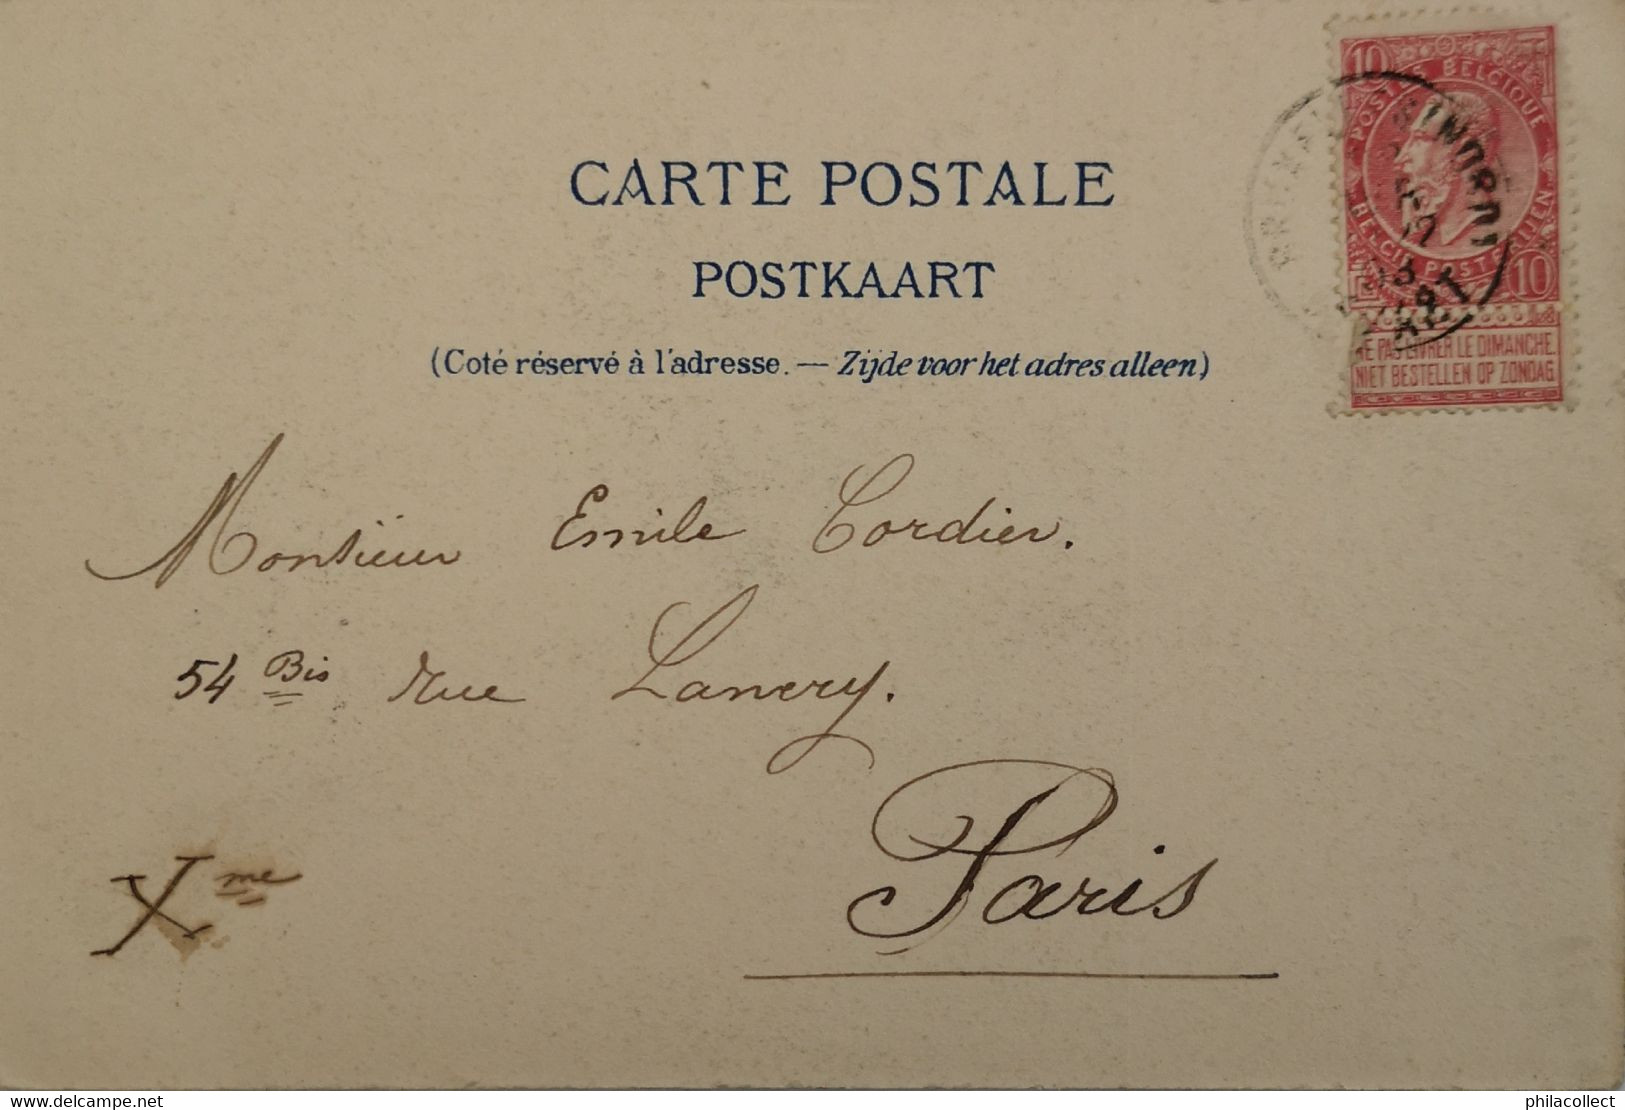 CARTE POSTALE
POSTKAART
(Coté réservé à l'adresse. — Zijde voor het adres alleen)
10 10
POSTES BELGIQUE
BELGIE POSTERIJEN
10
NE PAS LIVRER LE DIMANCHE.
NIET BESTELLEN OP ZONDAG
Monsieur Emile Cordier.
54 Bis rue Lancry.
Paris
X me
delcampe.net
philacollect